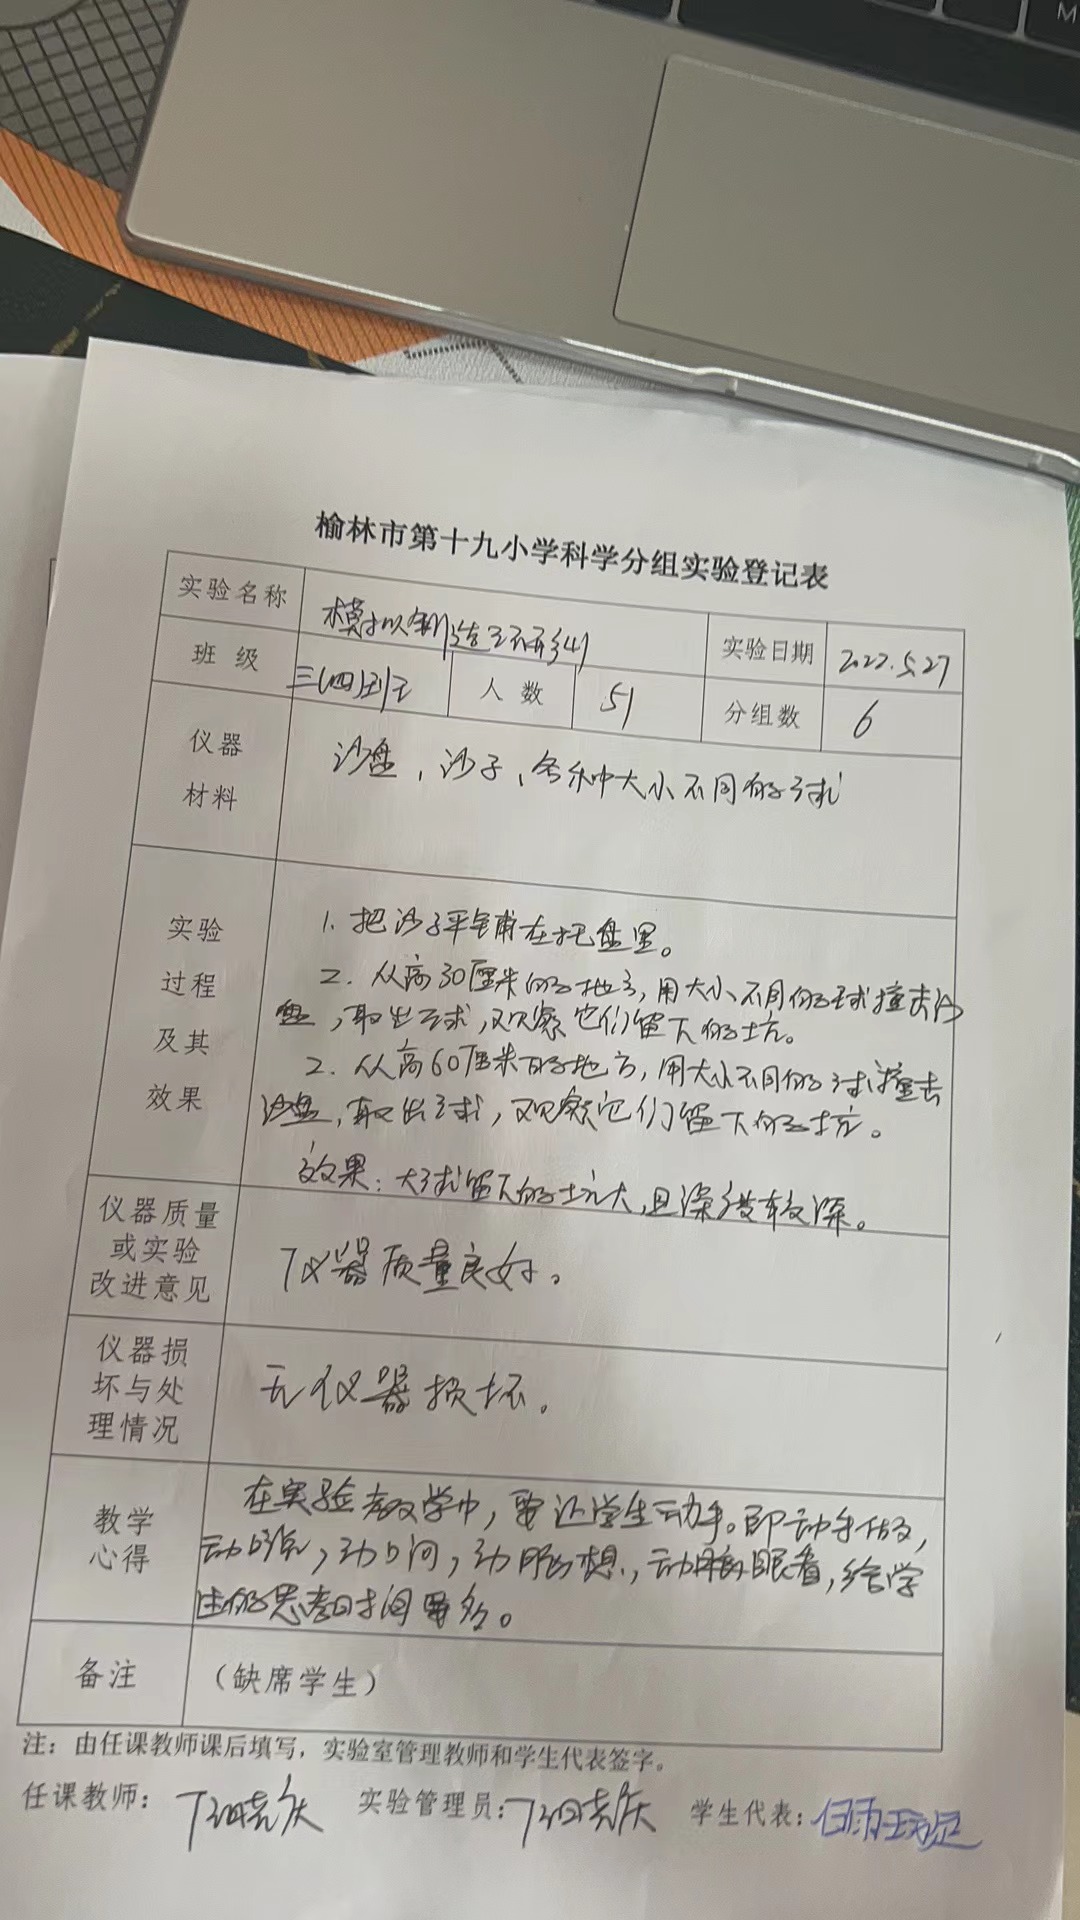 M
榆林市第十九小学科学分组实验登记表
实验名称 模拟制造环形山 实验日期 2022.5.27
班 级 三(四)班 人 数 51 分组数 6
仪器
材料
沙盘，沙子，各种大小不同的球
实验
过程
及其
效果
1. 把沙子平铺在托盘里。
2. 从高30厘米的地方，用大小不同的球撞击沙
盘，取出球，观察它们留下的坑。
2. 从高60厘米的地方，用大小不同的球撞击
沙盘，取出球，观察它们留下的坑。
效果：大球留下的坑大，且深度较深。
仪器质量
或实验
改进意见
仪器质量良好。
仪器损
坏与处
理情况
无仪器损坏。
教学
心得
在实验教学中，要让学生动手。即动手做，
动口说，动口问，动脑想，动眼看，给学
生的思考时间要多。
备注 （缺席学生）
注：由任课教师课后填写，实验室管理教师和学生代表签字。
任课教师： 实验管理员： 学生代表：